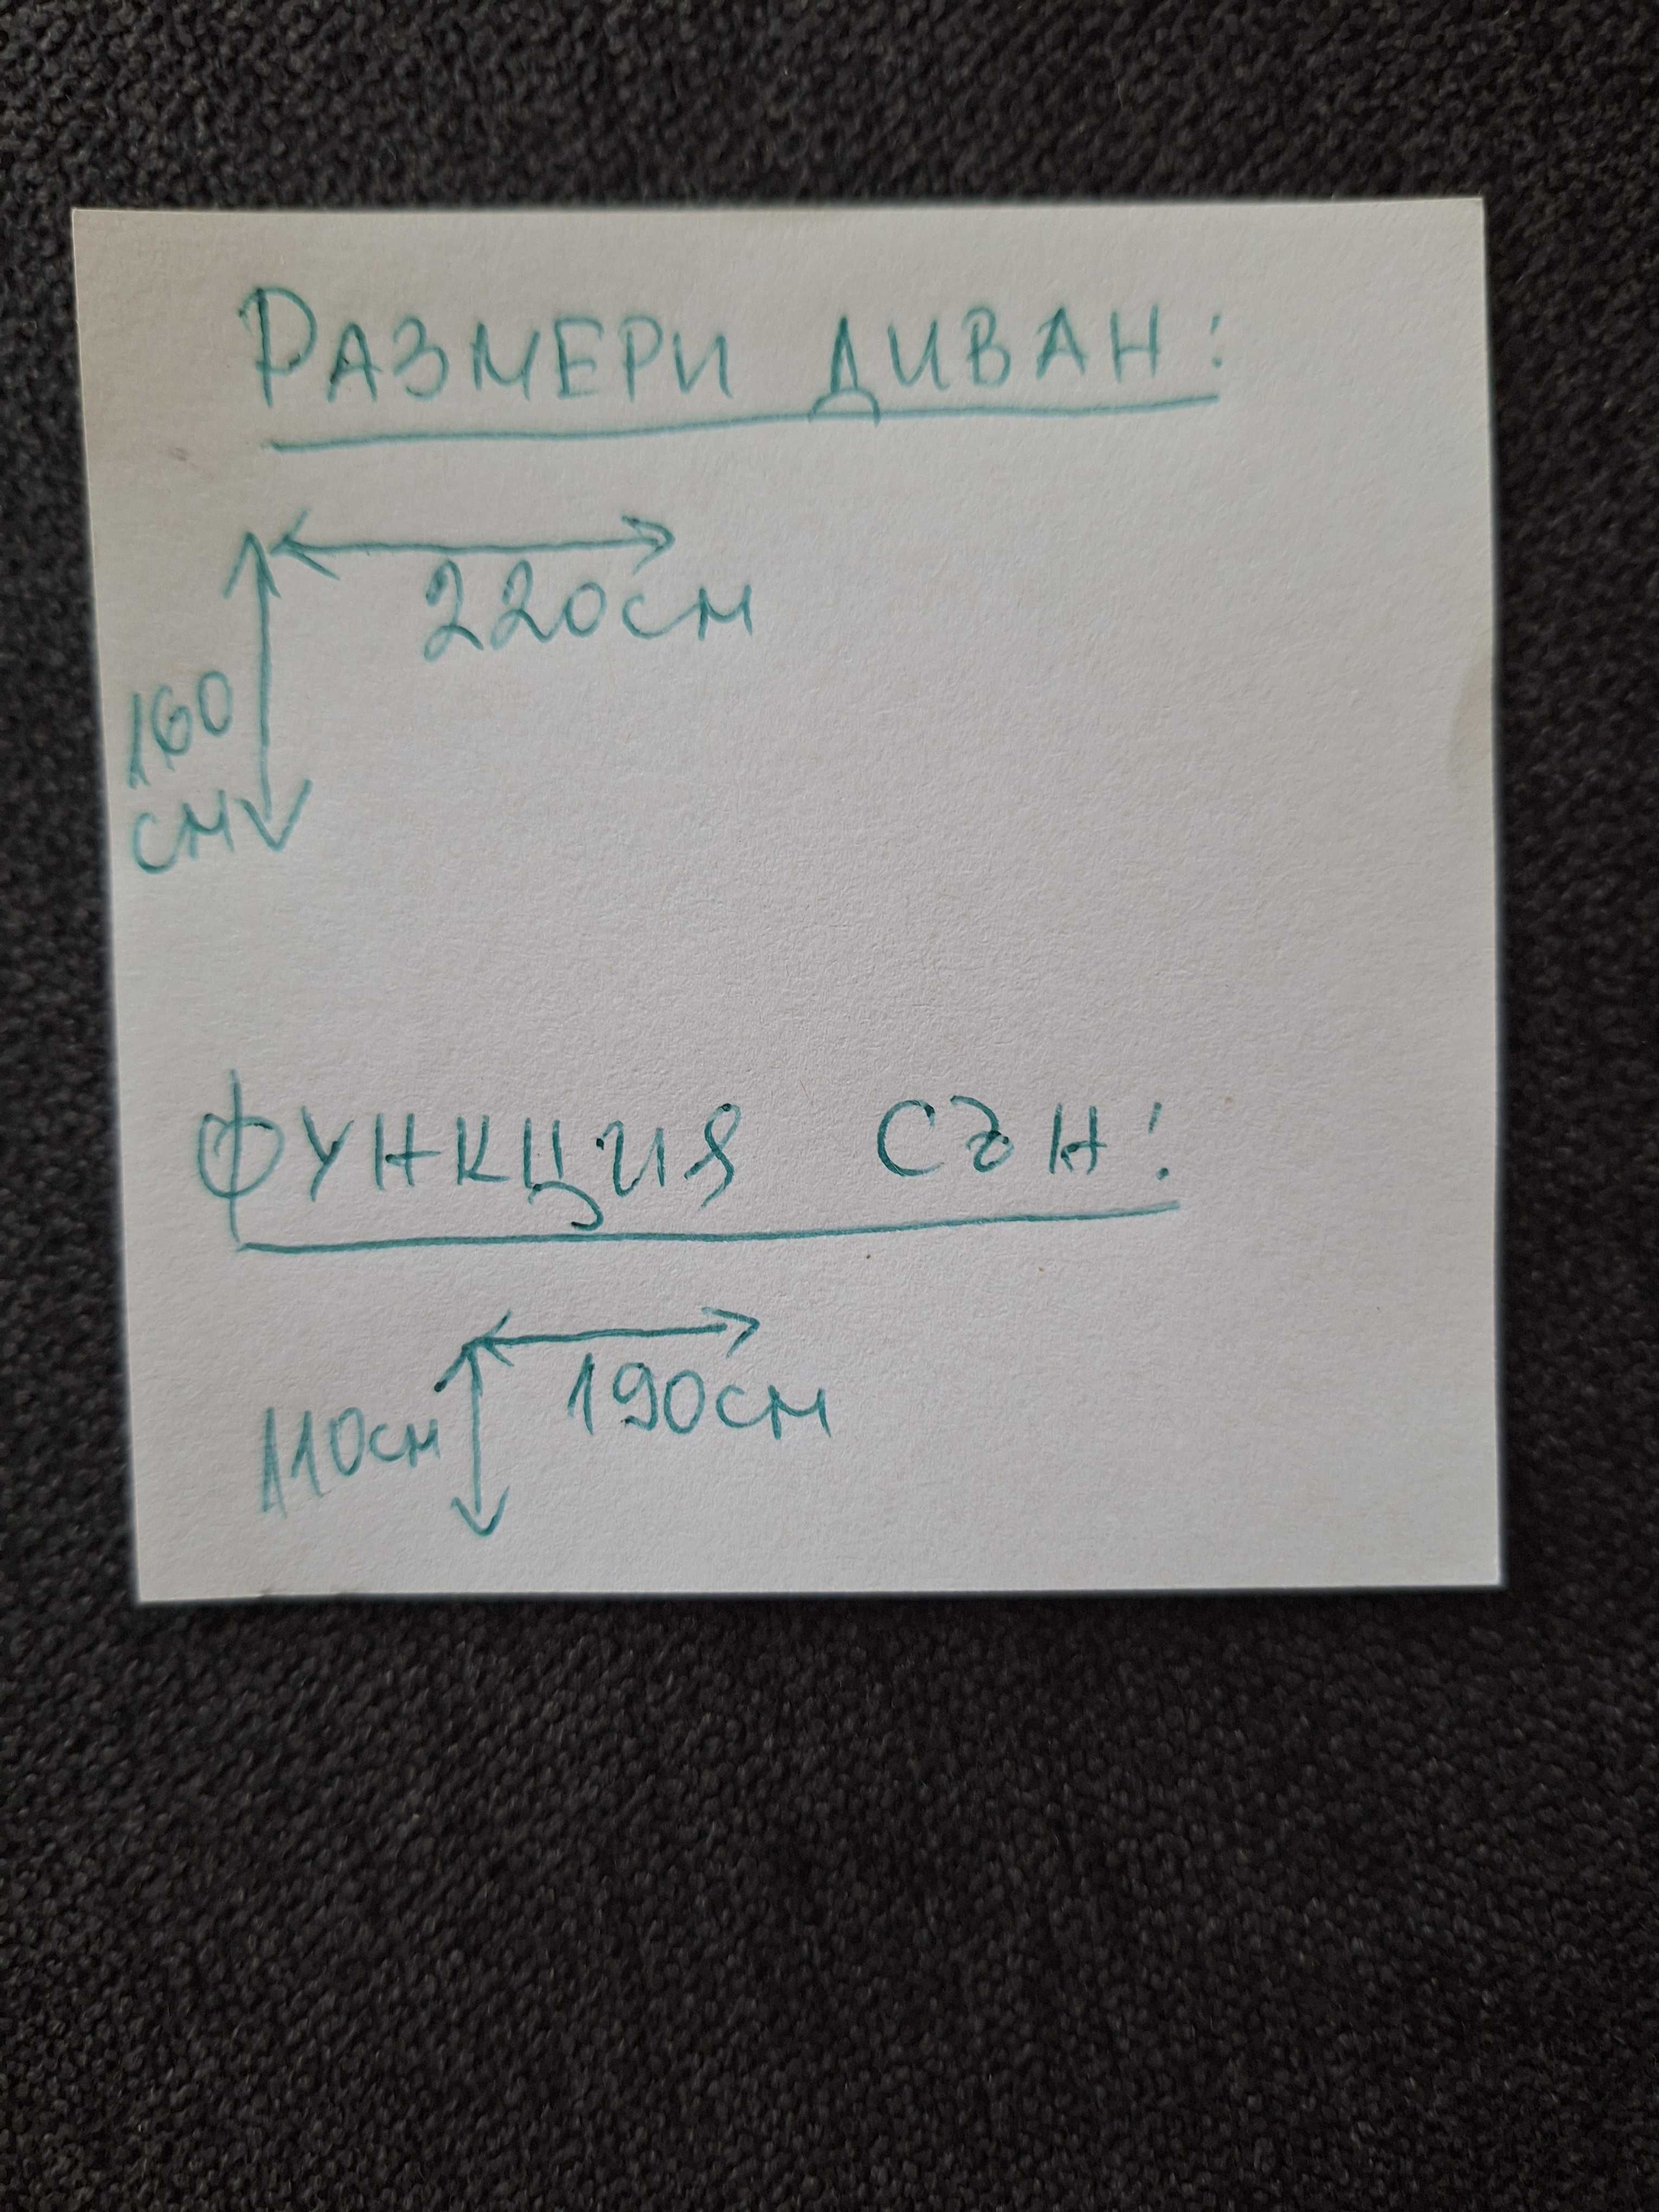 РАЗМЕРИ ДИВАН:
220см
160
см
ФУНКЦИЯ СЪН:
190см
110см